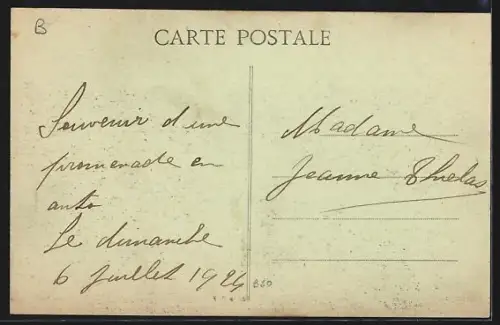 B
CARTE POSTALE
Souvenir d'une
promenade en
auto
Le dimanche
6 Juillet 1924
B50
Madame
Jeanne Thelas